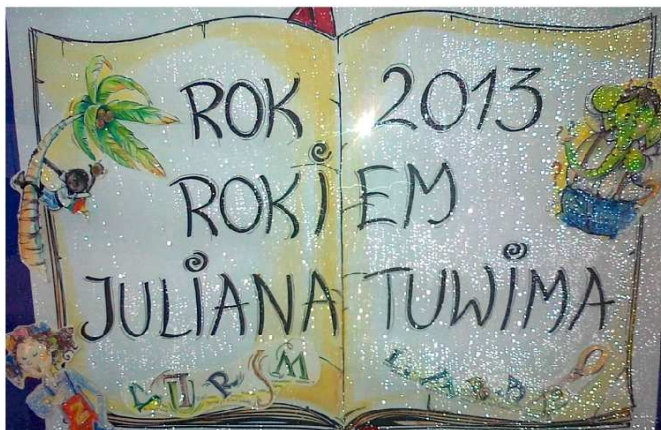 ROK 2013
ROKiEM
JULIANA TUWiMA